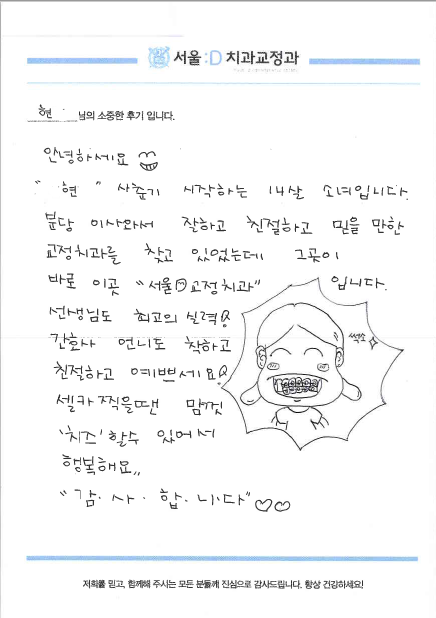 서울:D 치과교정과
현 님의 소중한 후기 입니다.
안녕하세요
" 현 " 사춘기 시작하는 14살 소녀입니다.
분당 이사와서 잘하고 친절하고 믿을 만한
교정치과를 찾고 있었는데 그곳이
바로 이곳 "서울D교정치과" 입니다.
선생님도 최고의 실력!
간호사 언니도 착하고
친절하고 예쁘세요!
쎅소
셀카 찍을땐 맘껏
'치즈' 할수 있어서
행복해요,,
"감·사·합·니·다" ♡♡
저희를 믿고, 함께해 주시는 모든 분들께 진심으로 감사드립니다. 항상 건강하세요!